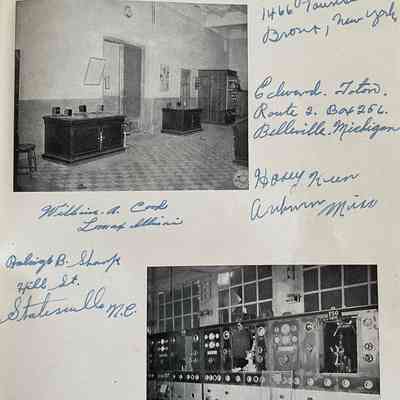 1466
Bronx, New York
Edward. Toton.
Route 2. Box 256.
Belleville. Michigan
Auburn Miss
William. A. Cook
Lomax Illinois
Raleigh B. Sharpe
Hill St.
Statesville N.C.